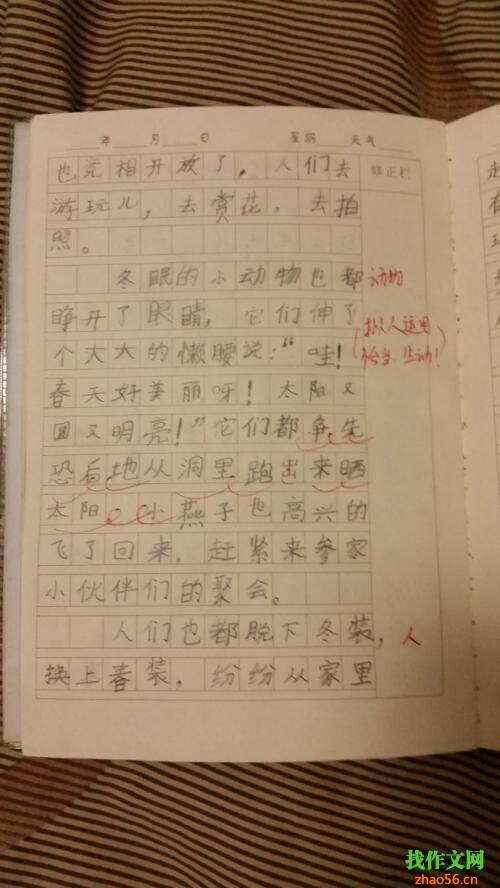 年 月 日 星期 天气
也竞相开放了，人们去 修正栏
游玩儿，去赏花，去拍
照。
冬眠的小动物也都 动物
睁开了眼睛，它们伸了 (拟人运用
个大大的懒腰说：“哇！ 恰当、生动！)
春天好美丽呀！太阳又
圆又明亮！”它们都争先
恐后地从洞里跑出来晒
太阳。小燕子也高兴的
飞了回来，赶紧来参家
小伙伴们的聚会。
人们也都脱下冬装， 人
换上春装，纷纷从家里
找作文网
zhao56.cn